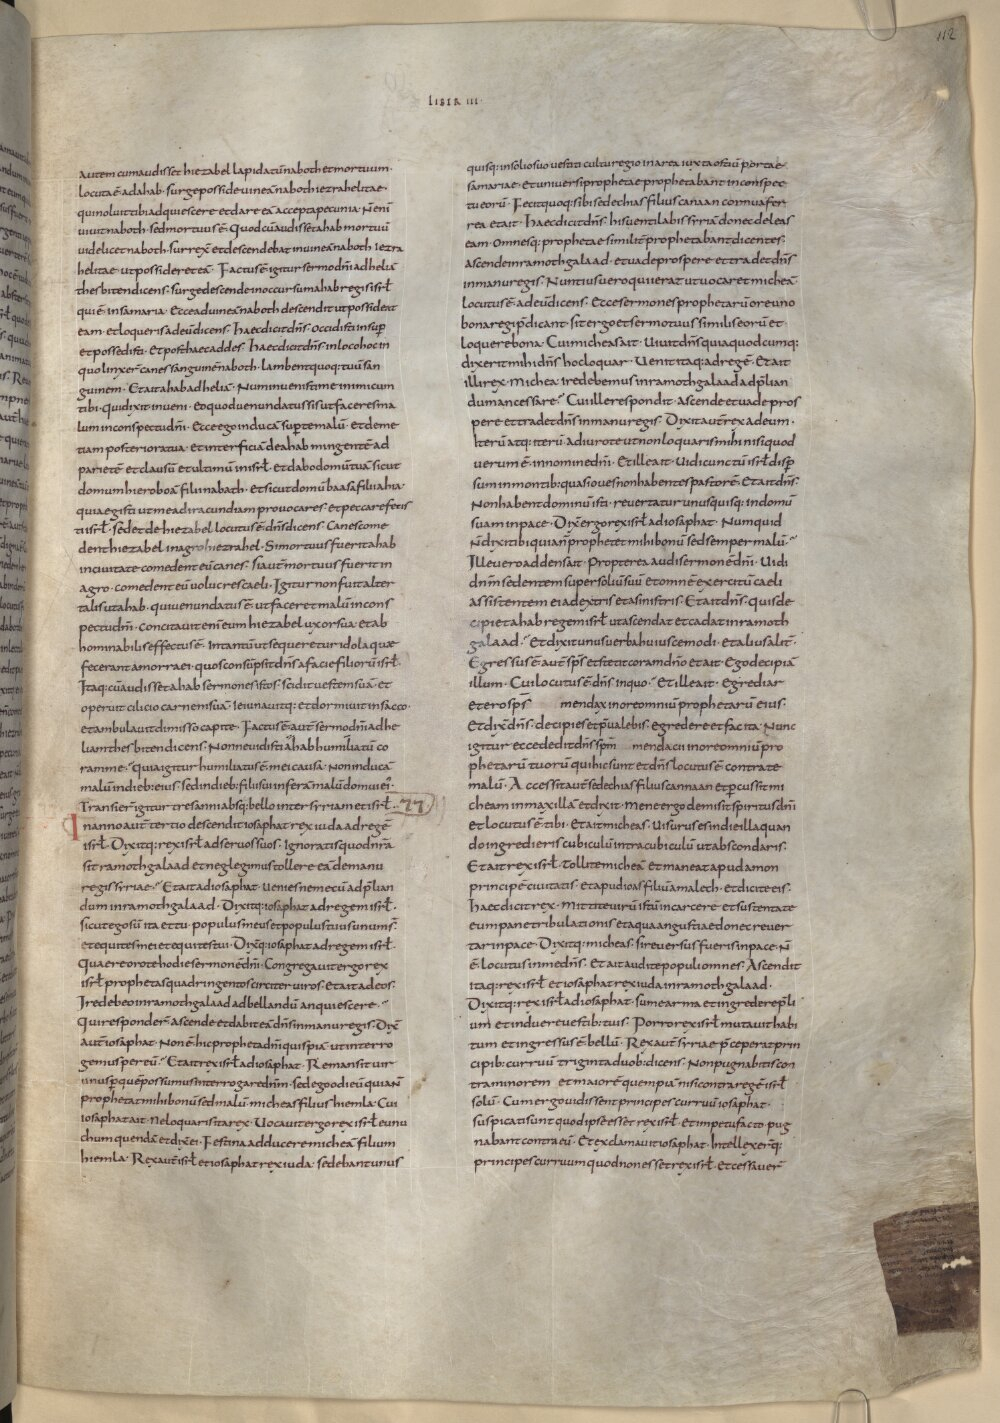 112
LIBER III.
autem cum audisset hiezabel lapidatū naboth et mortuum.
locuta ē ad ahab. Surge posside uineā naboth iezrahelitae.
qui noluit tibi adquiescere et dare eā accepta pecunia. N̄ enī
uiuit naboth. sed mortuus ē. Quod cū audisset ahab mortuū
uidelicet naboth. surrex̄ et descendebat in uineā naboth iezra
helitae. ut possideret eā. Factus ē igitur sermo dn̄i ad heliā
thesbiten dicens. Surge descende in occursum ahab regis isrl̄
qui ē in samaria. Ecce ad uineā naboth descendit ut possideat
eam. et loqueris ad eū dicens. Haec dicit dn̄s. Occidisti insup
et possedisti. Et post haec addes. Haec dicit dn̄s. In loco hoc in
quo linxer̄ canes sanguinē naboth. lambent quoq: tuū san
guinem. Et ait ahab ad heliā. Num inuenisti me inimicum
tibi. Qui dixit inueni. eo quod uenundatus sis ut faceres ma
lum in conspectu dn̄i. Ecce ego inducā sup te malū. et deme
tiam posteriora tua. et interficiā de ahab mingentē ad
parietē et clausū et ultimū in isrl̄. et dabo domū tuā sicut
domum hieroboā filii nabath. et sicut domū baasa filii ahia.
quia egisti ut me ad iracundiam prouocares. et peccare fecis
ti isrl̄. sed et de hiezabel locutus ē dn̄s dicens. Canes come
dent hiezabel in agro hiezrahel. Si mortuus fuerit ahab
in ciuitate comedent eū canes. si aut̄ mortuus fuerit in
agro. comedent eū uolucres caeli. Igitur non fuit alter
talis ut ahab. qui uenundatus ē ut faceret malū in cons
pectu dn̄i. Concitauit enī eum hiezabel uxor sua. et ab
hominabilis effectus ē. In tantū ut sequeretur idola quae
fecerant amorraei. quos consūpsit dn̄s a facie filiorū isrl̄.
Itaq: cū audisset ahab sermones istos. scidit uestem suā. et
operuit cilicio carnem suā. ieiunauitq: et dormiuit in sacco.
et ambulauit dimisso capite. Factus ē aut̄ sermo dn̄i ad he
liam thesbiten dicens. Nonne uidisti ahab humiliatū co
ram me. quia igitur humiliatus ē mei causa. Non inducā
malū in dieb: eius. sed in dieb: filii sui inferā malū domui ei'.
Transier̄ igitur tres anni absq: bello inter syriam et isrl̄. 22
In anno aut̄ tertio descendit iosaphat rex iuda ad regē
isrl̄. Dixitq: rex isrl̄ ad seruos suos. Ignoratis quod nr̄a
sit ramoth galaad et neglegimus tollere eā de manu
regis syriae. Et ait ad iosaphat. Venies ne mecū ad p̄lian
dum in ramoth galaad. Dixitq: iosaphat ad regem isrl̄.
sicut ego sū ita et tu. populus meus et populus tuus unum s̄.
et equites mei et equites tui. Dixq: iosaphat ad regem isrl̄.
Quaere oro te hodie sermonē dn̄i. Congregauit ergo rex
isrl̄ prophetas quadringentos circiter uiros. et ait ad eos.
Ire debeo in ramoth galaad ad bellandū an quiescere.
Qui responder̄. ascende et dabit eā dn̄s in manu regis. Dix̄
aut̄ iosaphat. Non ē hic propheta dn̄i quispiā. ut interro
gemus per eū. Et ait rex isrl̄ ad iosaphat. Remansit uir
unus p̄ quē possumus interrogare dn̄m. sed ego odi eū quia n̄
prophetat mihi bonū sed malū. micheas filius hiemla. Cui
iosaphat ait. Ne loquaris ita rex. Vocauit ergo rex isrl̄ eunu
chum quendā et dix̄ ei. Festina adducere micheā filium
hiemla. Rex aut̄ isrl̄ et iosaphat rex iuda. sedebant unus
quisq: in solio suo uestiti cultu regio in area iuxta ostiū portae
samariae. et uniuersi prophetae prophetabant in conspec
tu eorū. Fecit quoq: sibi sedechias filius canaan cornua fer
rea et ait. Haec dicit dn̄s. his uentilabis syriā donec deleas
eam. Omnesq: prophetae similit̄ prophetabant dicentes.
ascende in ramoth galaad. et uade prospere et tradet dn̄s
in manu regis. Nuntius uero qui ierat ut uocaret micheā
locutus ē ad eū dicens. Ecce sermones prophetarū ore uno
bona regi p̄dicant. sit ergo et sermo tuus similis eorū et
loquere bona. Cui micheas ait. Viuit dn̄s quia quodcumq:
dixerit mihi dn̄s hoc loquar. Venit itaq: ad regē. Et ait
illi rex. Michea ire debemus in ramoth galaad ad p̄lian
dum an cessare. Cui ille respondit. Ascende et uade pros
pere et tradet dn̄s in manu regis. Dixit aut̄ rex ad eum.
Iterū atq: iterū adiuro te ut non loquaris mihi nisi quod
uerum ē in nomine dn̄i. Et ille ait. Vidi cunctū isrl̄ disp̄
sum in montib: quasi oues non habentes pastorē. Et ait dn̄s.
Non habent dominū isti. reuertatur unusquisq: in domū
suam in pace. Dix̄ ergo rex isrl̄ ad iosaphat. Numquid
n̄ dixi tibi quia n̄ prophetet mihi bonū sed semper malū.
Ille uero addens ait. Propterea audi sermonē dn̄i. Vidi
dn̄m sedentem super soliū suū et omnē exercitū caeli
assistentem ei a dextris et a sinistris. Et ait dn̄s. quis de
cipiet ahab regem isrl̄ ut ascendat et cadat in ramoth
galaad. Et dixit unus uerba huiuscemodi. et alius alit̄.
Egressus ē aut̄ sp̄s et stetit coram dn̄o et ait. Ego decipiā
illum. Cui locutus ē dn̄s. in quo. Et ille ait. Egrediar
et ero sp̄s mendax in ore omniū prophetarū eius.
Et dix̄ dn̄s. decipies et p̄ualebis. egredere et fac ita. Nunc
igitur ecce dedit dn̄s sp̄m mendacii in ore omniū pro
phetarū tuorū qui hic sunt et dn̄s locutus ē contra te
malū. Accessit aut̄ sedechias filius cannaan et percussit mi
cheam in maxillā et dixit. Me ne ergo demisit spiritus dn̄i
et locutus ē tibi. Et ait micheas. Visurus es in die illa quan
do ingredieris cubiculū intra cubiculū ut abscondaris.
Et ait rex isrl̄. Tollite micheā et maneat apud amon
principē ciuitatis. et apud ioas filiū amalech. et dicite eis.
Haec dicit rex. Mittite uirū istū in carcere et sustentate
eum pane tribulationis et aqua angustiae donec reuer
tar in pace. Dixitq: micheas. si reuersus fueris in pace. n̄
ē locutus in me dn̄s. Et ait audite populi omnes. Ascendit
itaq: rex isrl̄ et iosaphat rex iuda in ramoth galaad.
Dixitq: rex isrl̄ ad iosaphat. sume arma et ingredere p̄li
um et induere uestib: tuis. Porro rex isrl̄ mutauit habi
tum et ingressus ē bellū. Rex aut̄ syriae p̄ceperat prin
cipib: curruū triginta duob: dicens. Non pugnabitis con
tra minorem et maiorē quempiā nisi contra regē isrl̄
solū. Cum ergo uidissent principes curruū iosaphat.
suspicati sunt quod ipse esset rex isrl̄. et impetu facto pug
nabant contra eū. Et exclamauit iosaphat. Intellexer̄q:
principes curruum quod non esset rex isrl̄. et cessauer̄